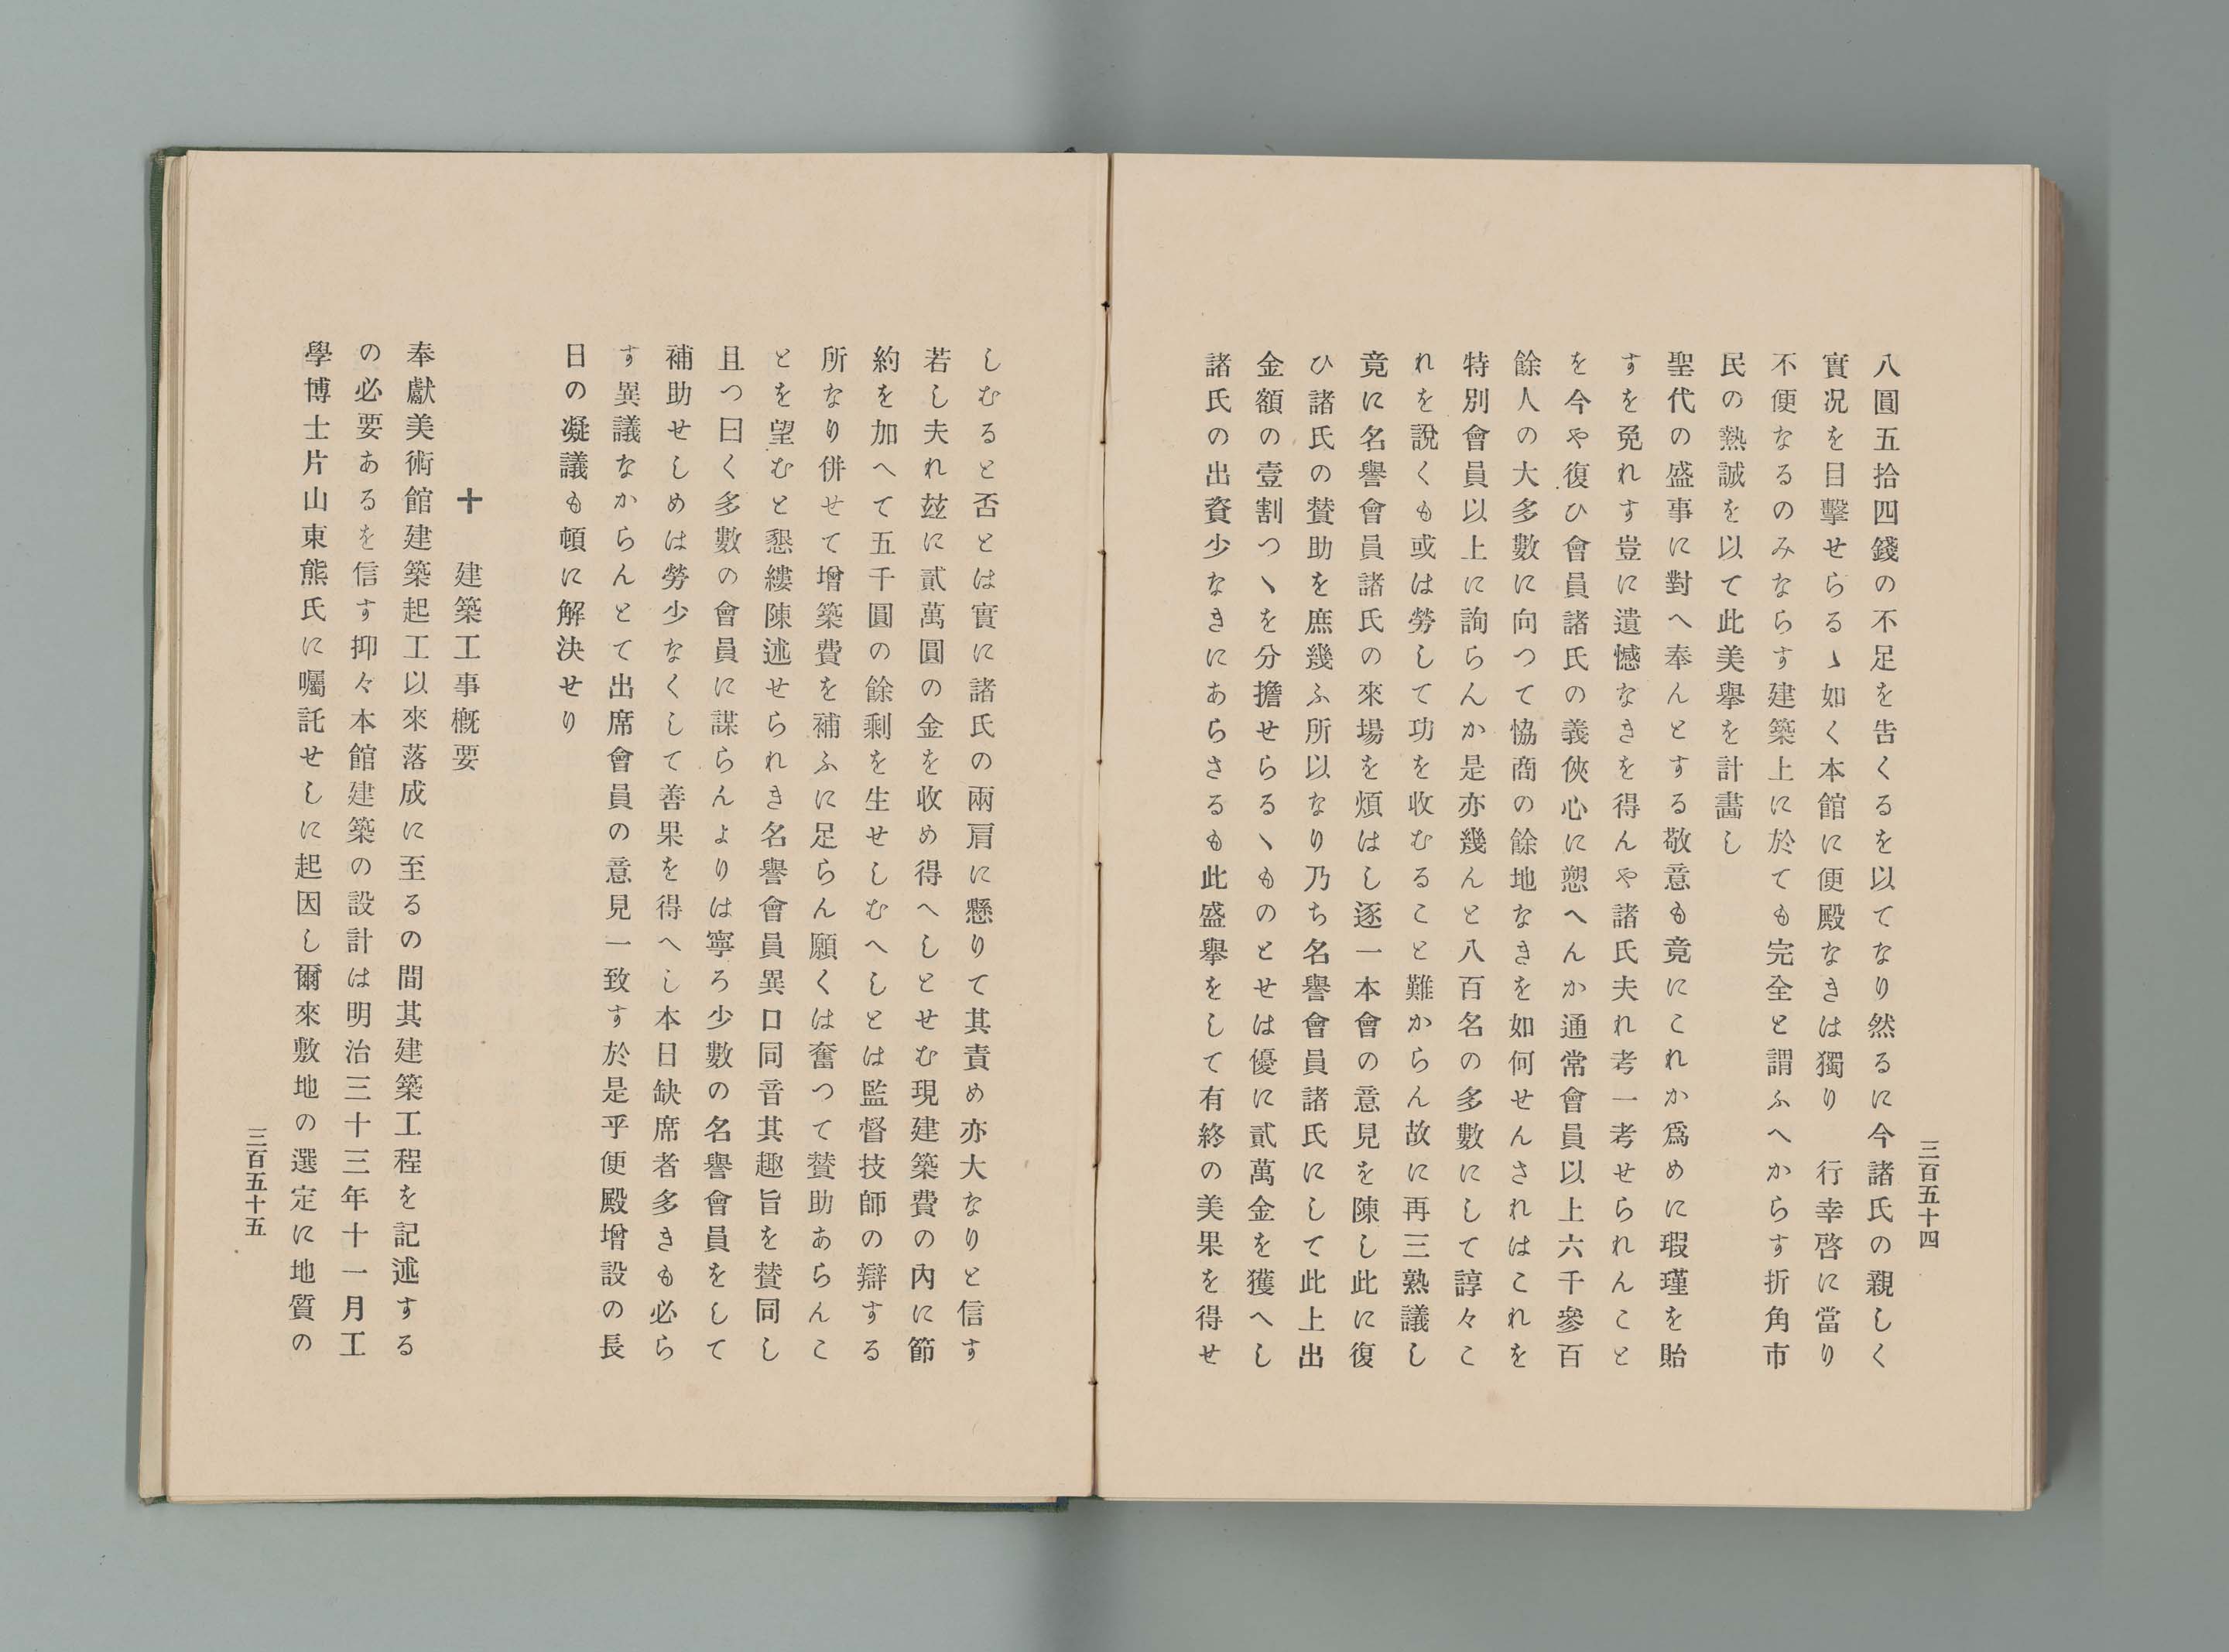 三百五十四
八圓五拾四錢の不足を告くるを以てなり然るに今諸氏の親しく
實况を目擊せらるゝ如く本館に便殿なきは獨り　行幸啓に當り
不便なるのみならす建築上に於ても完全と謂ふへからす折角市
民の熱誠を以て此美擧を計畫し
聖代の盛事に對へ奉んとする敬意も竟にこれか爲めに瑕瑾を貽
すを免れす豈に遺憾なきを得んや諸氏夫れ考一考せられんこと
を今や復ひ會員諸氏の義俠心に愬へんか通常會員以上六千參百
餘人の大多數に向つて恊商の餘地なきを如何せんされはこれを
特別會員以上に詢らんか是亦幾んと八百名の多數にして諄々こ
れを說くも或は勞して功を收むること難からん故に再三熟議し
竟に名譽會員諸氏の來場を煩はし逐一本會の意見を陳し此に復
ひ諸氏の賛助を庶幾ふ所以なり乃ち名譽會員諸氏にして此上出
金額の壹割つゝを分擔せらるゝものとせは優に貳萬金を獲へし
諸氏の出資少なきにあらさるも此盛擧をして有終の美果を得せ
しむると否とは實に諸氏の兩肩に懸りて其責め亦大なりと信す
若し夫れ玆に貳萬圓の金を收め得へしとせむ現建築費の內に節
約を加へて五千圓の餘剩を生せしむへしとは監督技師の辯する
所なり併せて增築費を補ふに足らん願くは奮つて賛助あらんこ
とを望むと懇縷陳述せられき名譽會員異口同音其趣旨を賛同し
且つ曰く多數の會員に謀らんよりは寧ろ少數の名譽會員をして
補助せしめは勞少なくして善果を得へし本日缺席者多きも必ら
す異議なからんとて出席會員の意見一致す於是乎便殿增設の長
日の凝議も頓に解決せり
十　建築工事槪要
奉獻美術館建築起工以來落成に至るの間其建築工程を記述する
の必要あるを信す抑々本館建築の設計は明治三十三年十一月工
學博士片山東熊氏に囑託せしに起因し爾來敷地の選定に地質の
三百五十五